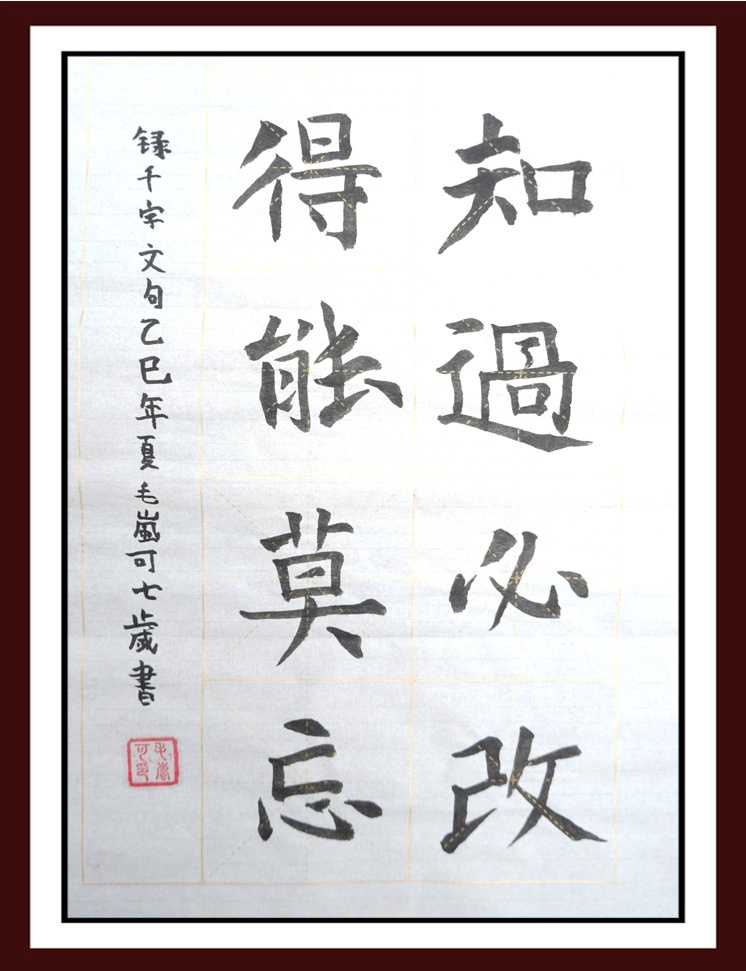 知過必改
得能莫忘
録千字文句乙巳年夏毛嵐可七歲書